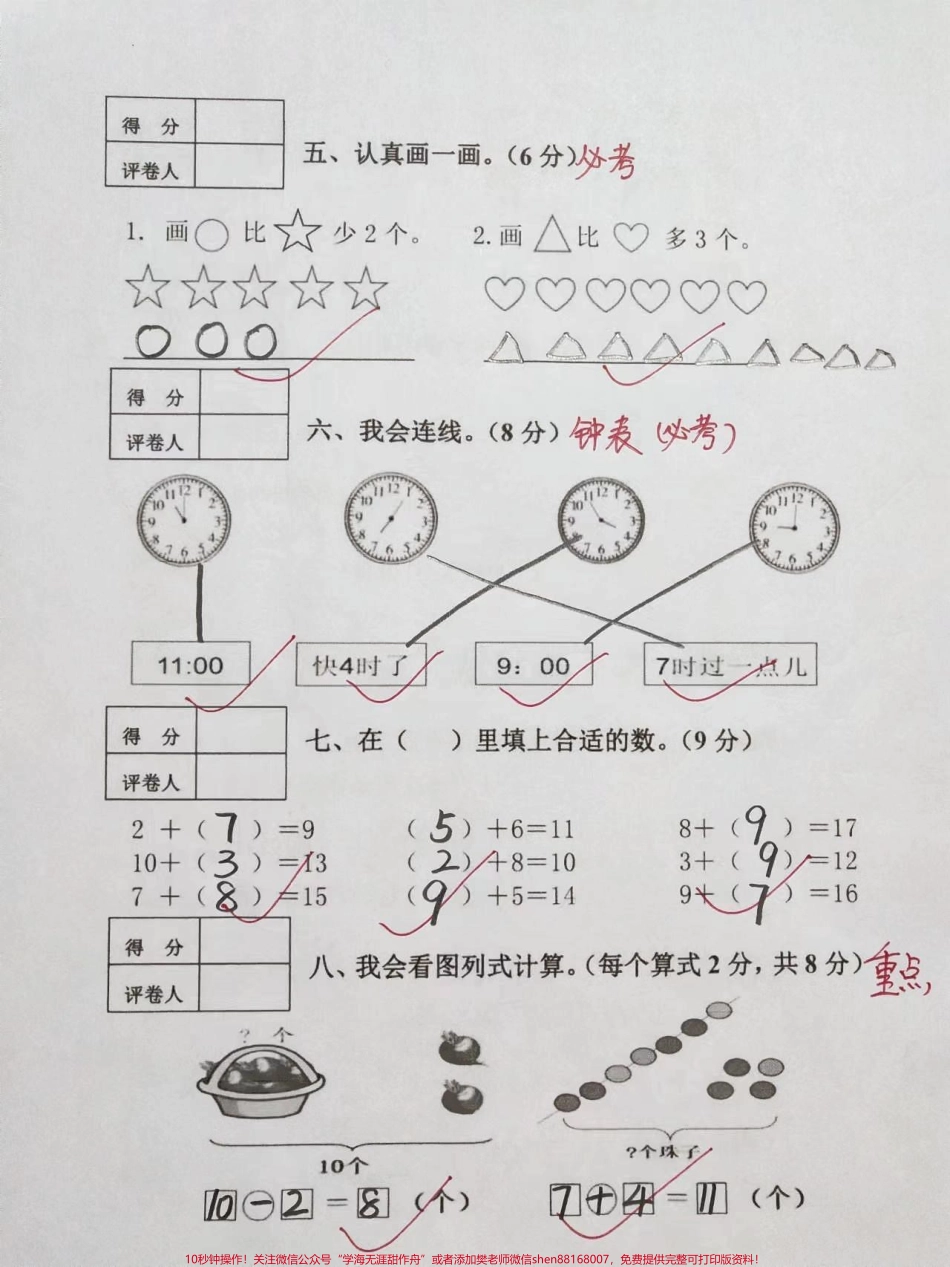 得 分
评卷人
五、认真画一画。(6 分)必考
1. 画 比 少 2 个。
2. 画 比 多 3 个。
得 分
评卷人
六、我会连线。(8 分)钟表(必考)
12 1 2 3 4 5 6 7 8 9 10 11
12 1 2 3 4 5 6 7 8 9 10 11
12 1 2 3 4 5 6 7 8 9 10 11
12 1 2 3 4 5 6 7 8 9 10 11
11:00
快4时了
9：00
7时过一点儿
得 分
评卷人
七、在（ ）里填上合适的数。(9 分)
2 +（7）=9 （5）+6=11 8+（9）=17
10+（3）=13 （2）+8=10 3+（9）=12
7 +（8）=15 （9）+5=14 9+（7）=16
得 分
评卷人
八、我会看图列式计算。(每个算式 2 分，共 8 分)重点,
? 个
10个
?个珠子
10－2=8（个） 7+4=11（个）
10秒钟操作！关注微信公众号“学海无涯甜作舟”或者添加樊老师微信shen88168007，免费提供完整可打印版资料！